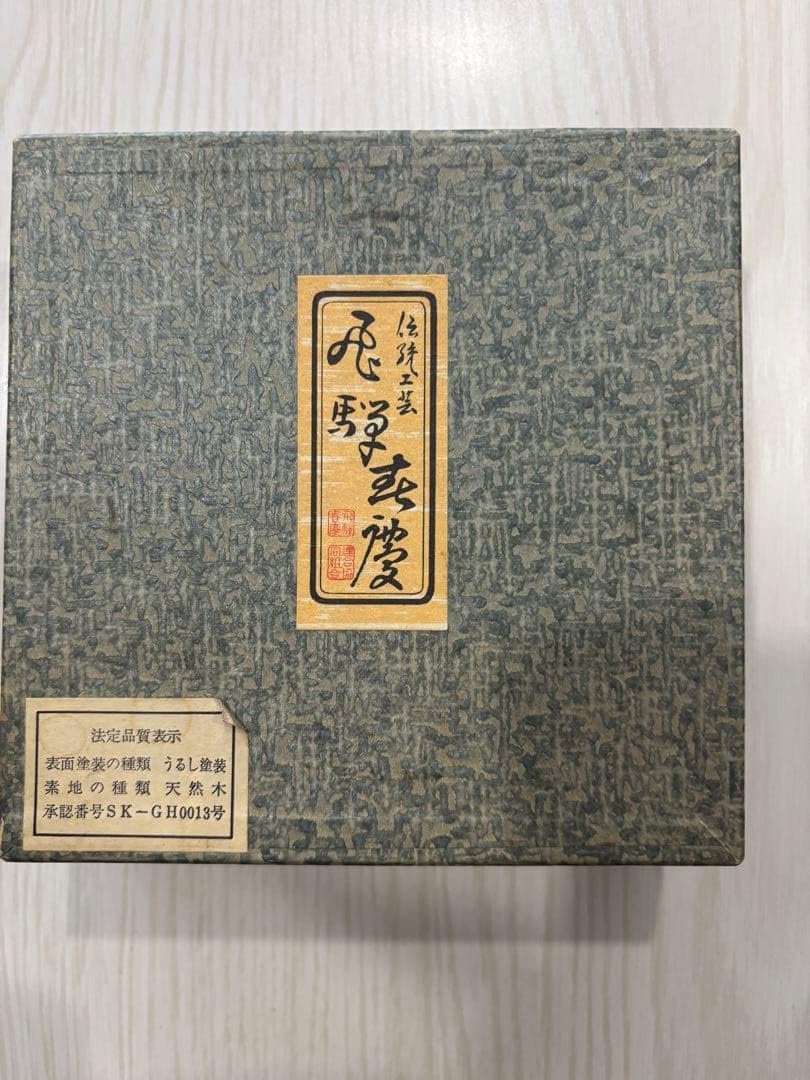 伝統工芸
飛騨春慶
飛騨
春慶
連合協
同組合
法定品質表示
表面塗装の種類 うるし塗装
素地の種類 天然木
承認番号SK-GH0013号